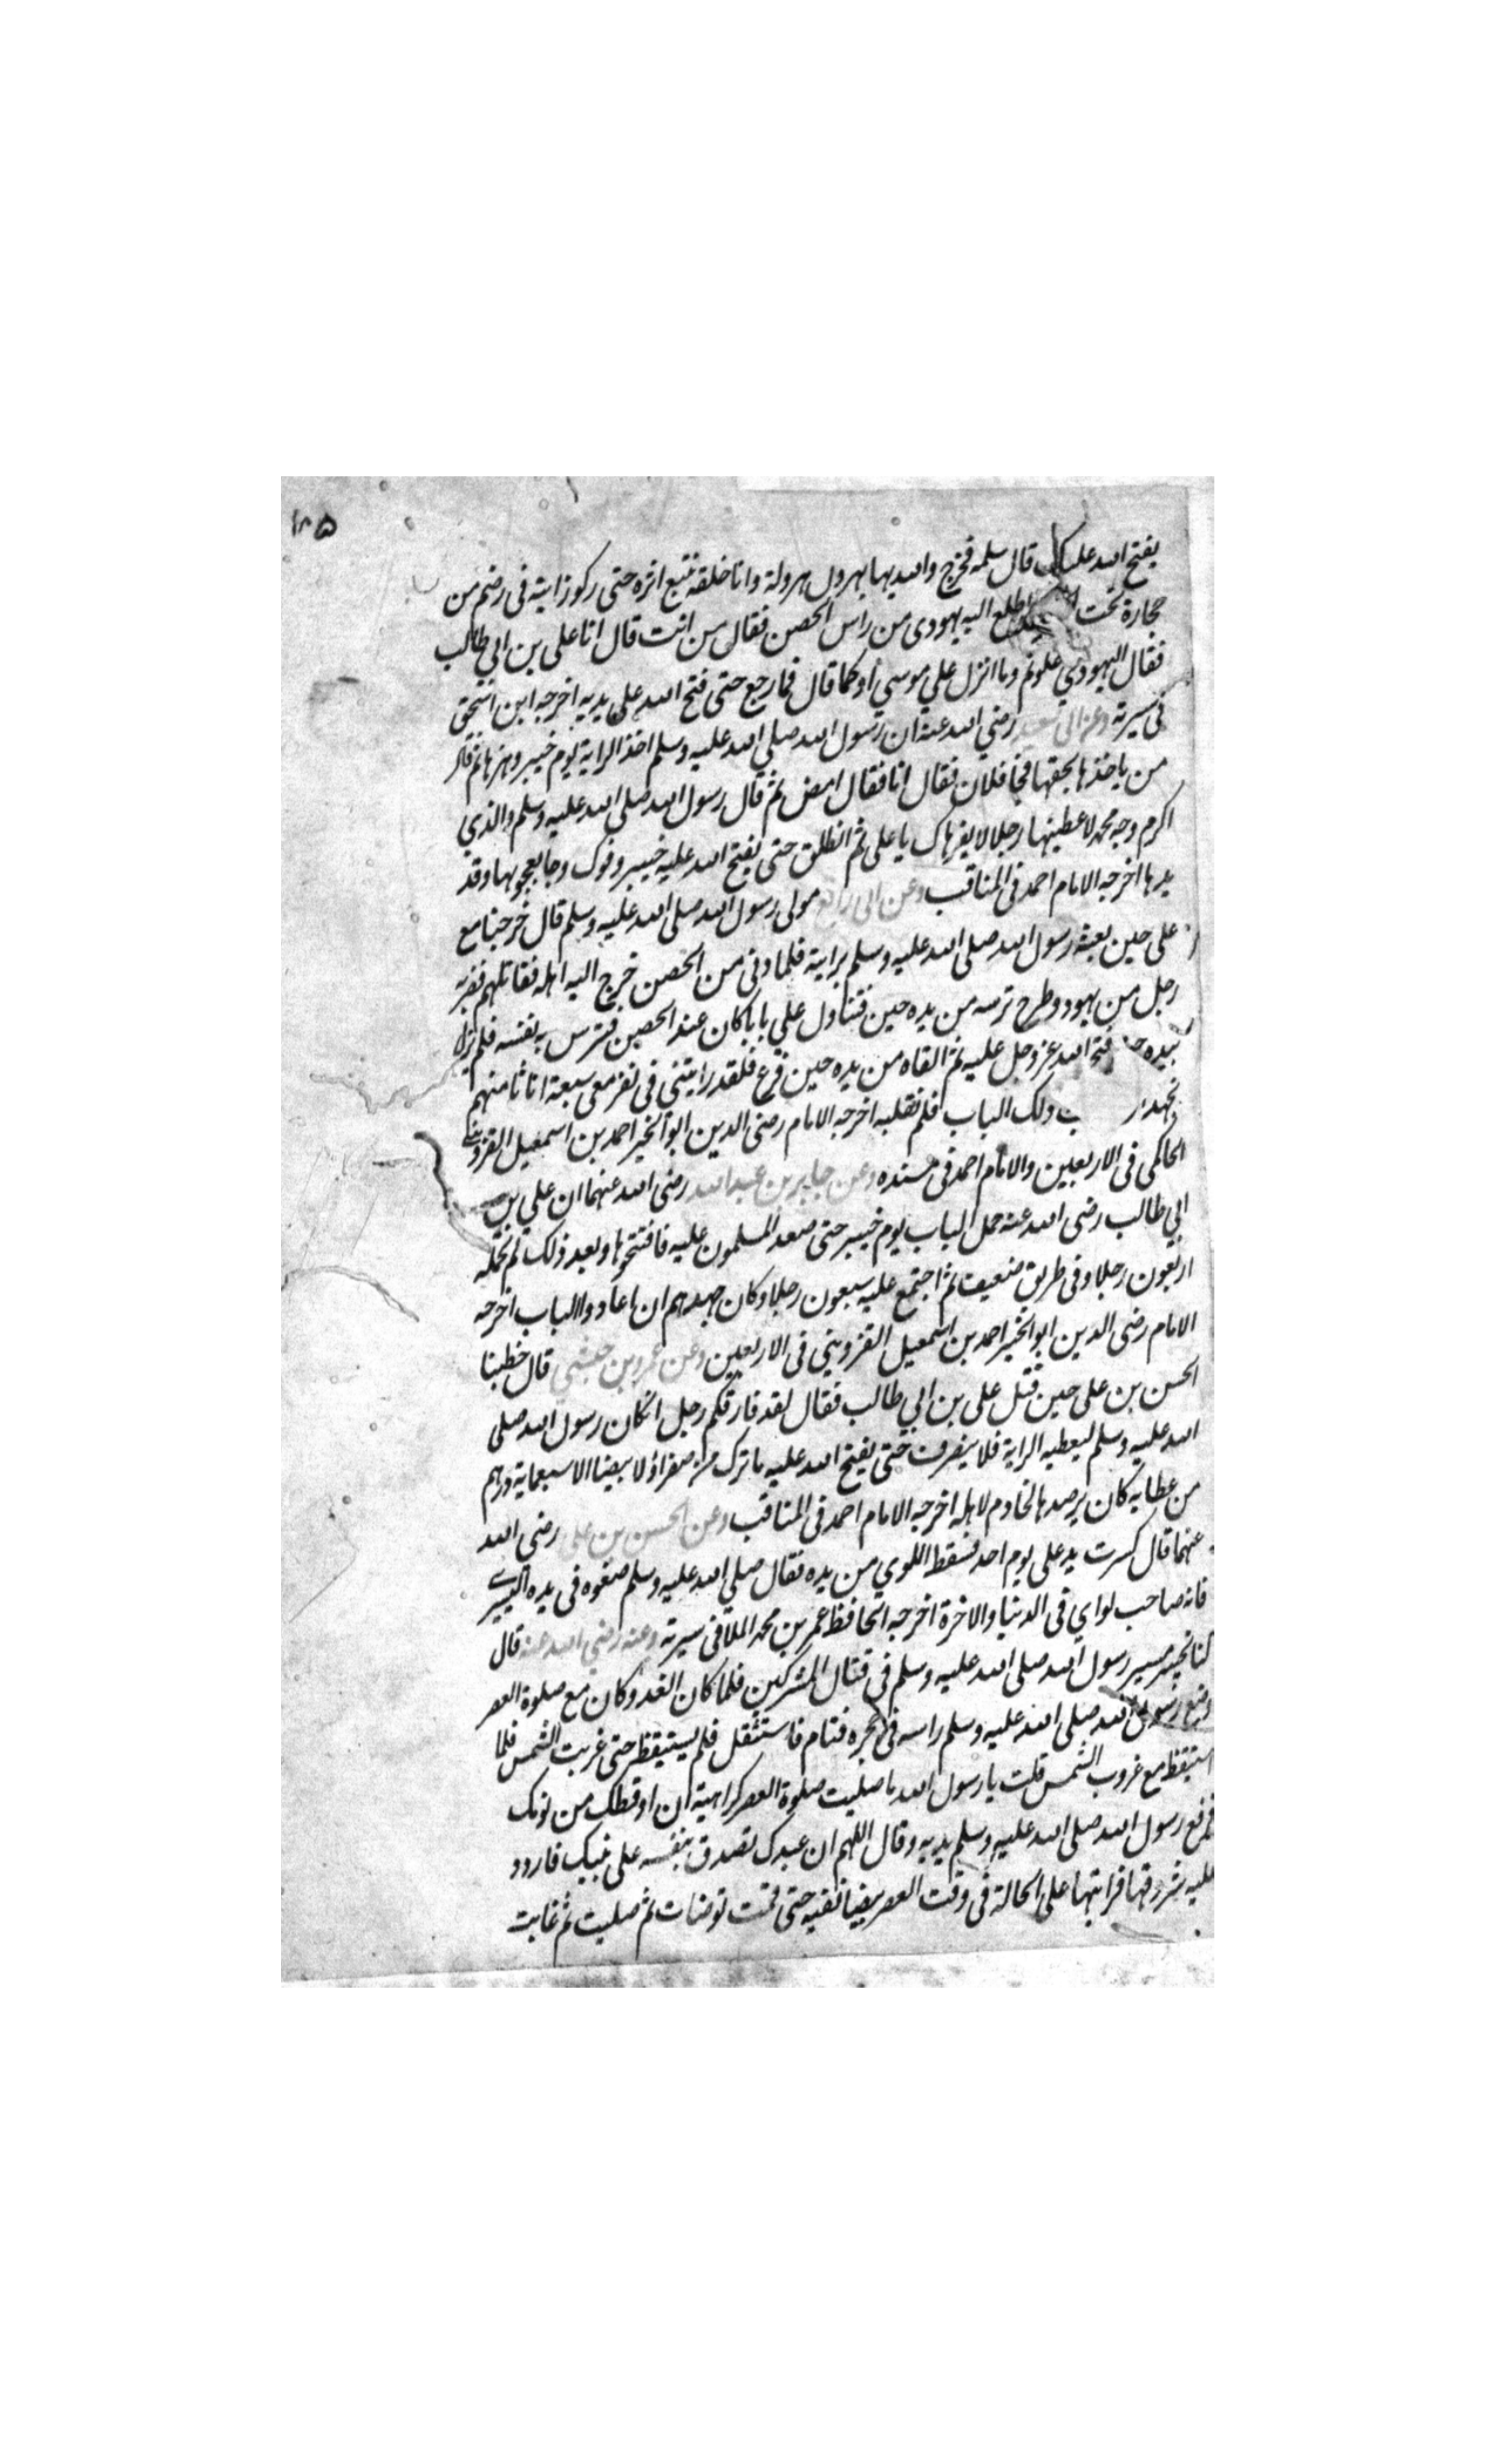 ١٨٥
يفتح الله عليك قال سلمه فخرج والله بها يهرول هرولة وانا خلفه نتبع اثره حتى ركز رايته فى رضم من
حجارة تحت اطلع اليه يهودى من راس الحصن فقال من انت قال انا على بن ابي طالب
فقال اليهودي علوتم وما انزل علي موسي أو كما قال فما رجع حتى فتح الله على يديه اخرجه ابن اسحق
فى سيرته وعن ابي سعيد رضي الله عنه ان رسول الله صلي الله عليه وسلم اخذ الراية يوم خيبر وهزها ثم قال
من ياخذها بحقها فجا فلان فقال انا فقال امض ثم قال رسول الله صلي الله عليه وسلم والذي
اكرم وجه محمد لاعطينها رجلا لا يفر هاك يا على ثم انطلق حتى يفتح الله عليه خيبر وفدك وجا بعجوبها وقد
يدها اخرجه الامام احمد فى المناقب وعن ابى رافع مولى رسول الله صلى الله عليه وسلم قال خرجنا مع
على حين بعثه رسول الله صلى الله عليه وسلم براية فلما دنى من الحصن خرج اليه اهله فقاتلهم فضربه
رجل من يهود وطرح ترسه من يده حين فتناول علي بابا كان عند الحصين فترس به نفسه فلم يزل
بيده فتح الله عز وجل عليه ثم القاه من يده حين فرغ فلقد رايتنى فى نفر معى سبعة انا ثامنهم
نجهد ذلك الباب فلم نقلبه اخرجه الامام رضى الدين ابو الخير احمد بن اسمعيل القزوينى
الحاكمى فى الاربعين والامام احمد فى مسنده وعن جابر بن عبد الله رضى الله عنهما ان علي بن
ابي طالب رضى الله عنه حمل الباب يوم خيبر حتى صعد المسلمون عليه فافتتحوها وبعد ذلك لم تحمله
اربعون رجلا وفى طريق ضعيف ثم اجتمع عليه سبعون رجلا وكان جهدهم ان اعادوا الباب اخرجه
الامام رضى الدين ابو الخير احمد بن اسمعيل القزويني فى الاربعين وعن عمرو بن حبشي قال خطبنا
الحسن بن على حين قتل على بن ابي طالب فقال لقد فارقكم رجل انكان رسول الله صلى
الله عليه وسلم ليعطيه الراية فلا ينصرف حتى يفتح الله عليه ما ترك من صفراؤ لا بيضا الا سبعماية درهم
من عطايه كان يرصدها لخادم لاهله اخرجه الامام احمد فى المناقب وعن الحسن بن علي رضي الله
عنهما قال كسرت يد على يوم احد فسقط اللوي من يده فقال صلي الله عليه وسلم ضعوه فى يده اليسرى
فانه صاحب لواي فى الدنيا والاخرة اخرجه الحافظ عمر بن محمد الملا فى سيرته وعنه رضي الله عنه قال
كنا بخيبر مسير رسول الله صلى الله عليه وسلم في قتال المشركين فلما كان الغد وكان مع صلوة العصر
وضع رسول الله صلى الله عليه وسلم راسه فى حجره فنام فاستثقل فلم يستيقظ حتى غربت الشمس فلما
استيقظ مع غروب الشمس قلت يا رسول الله ما صليت صلوة العصر كراهية ان اوقظك من نومك
فرفع رسول الله صلى الله عليه وسلم يديه وقال اللهم ان عبدك تصدق بنفسه على نبيك فاردد
عليه شروقها فرايتها على الحالة فى وقت العصر بيضا نقيه حتى قمت توضات ثم صليت ثم غابت